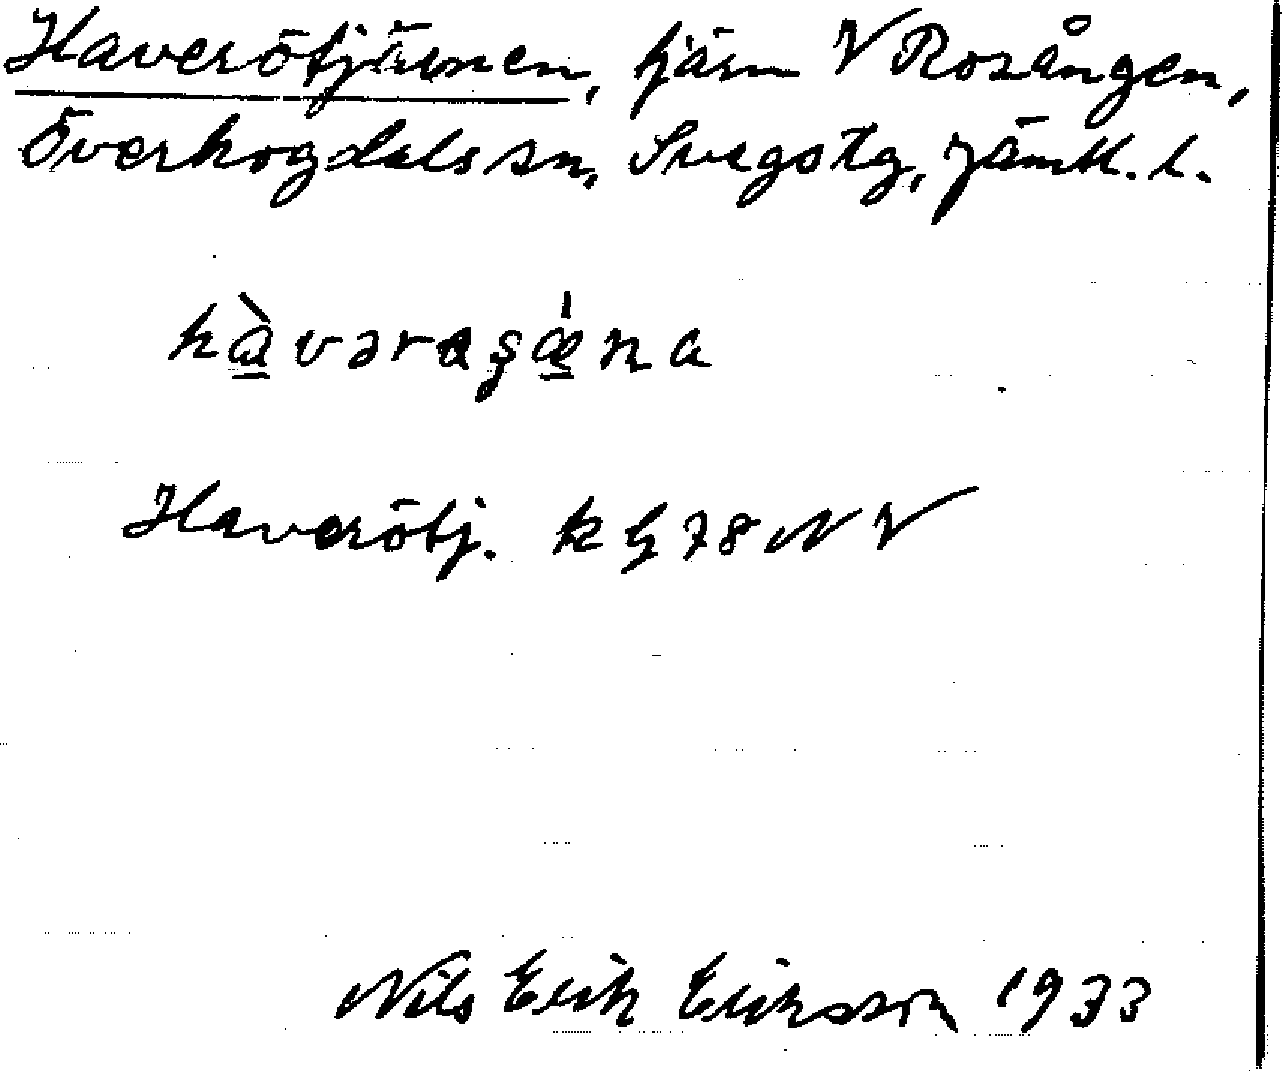 Haverötjärnen, tjärn V Rosången,
Överhogdals sn, Svegs tg, Jämtl. l.
hàvəraşǽna
Haverötj. k bl 78 NV
Nils Erik Eriksson 1933